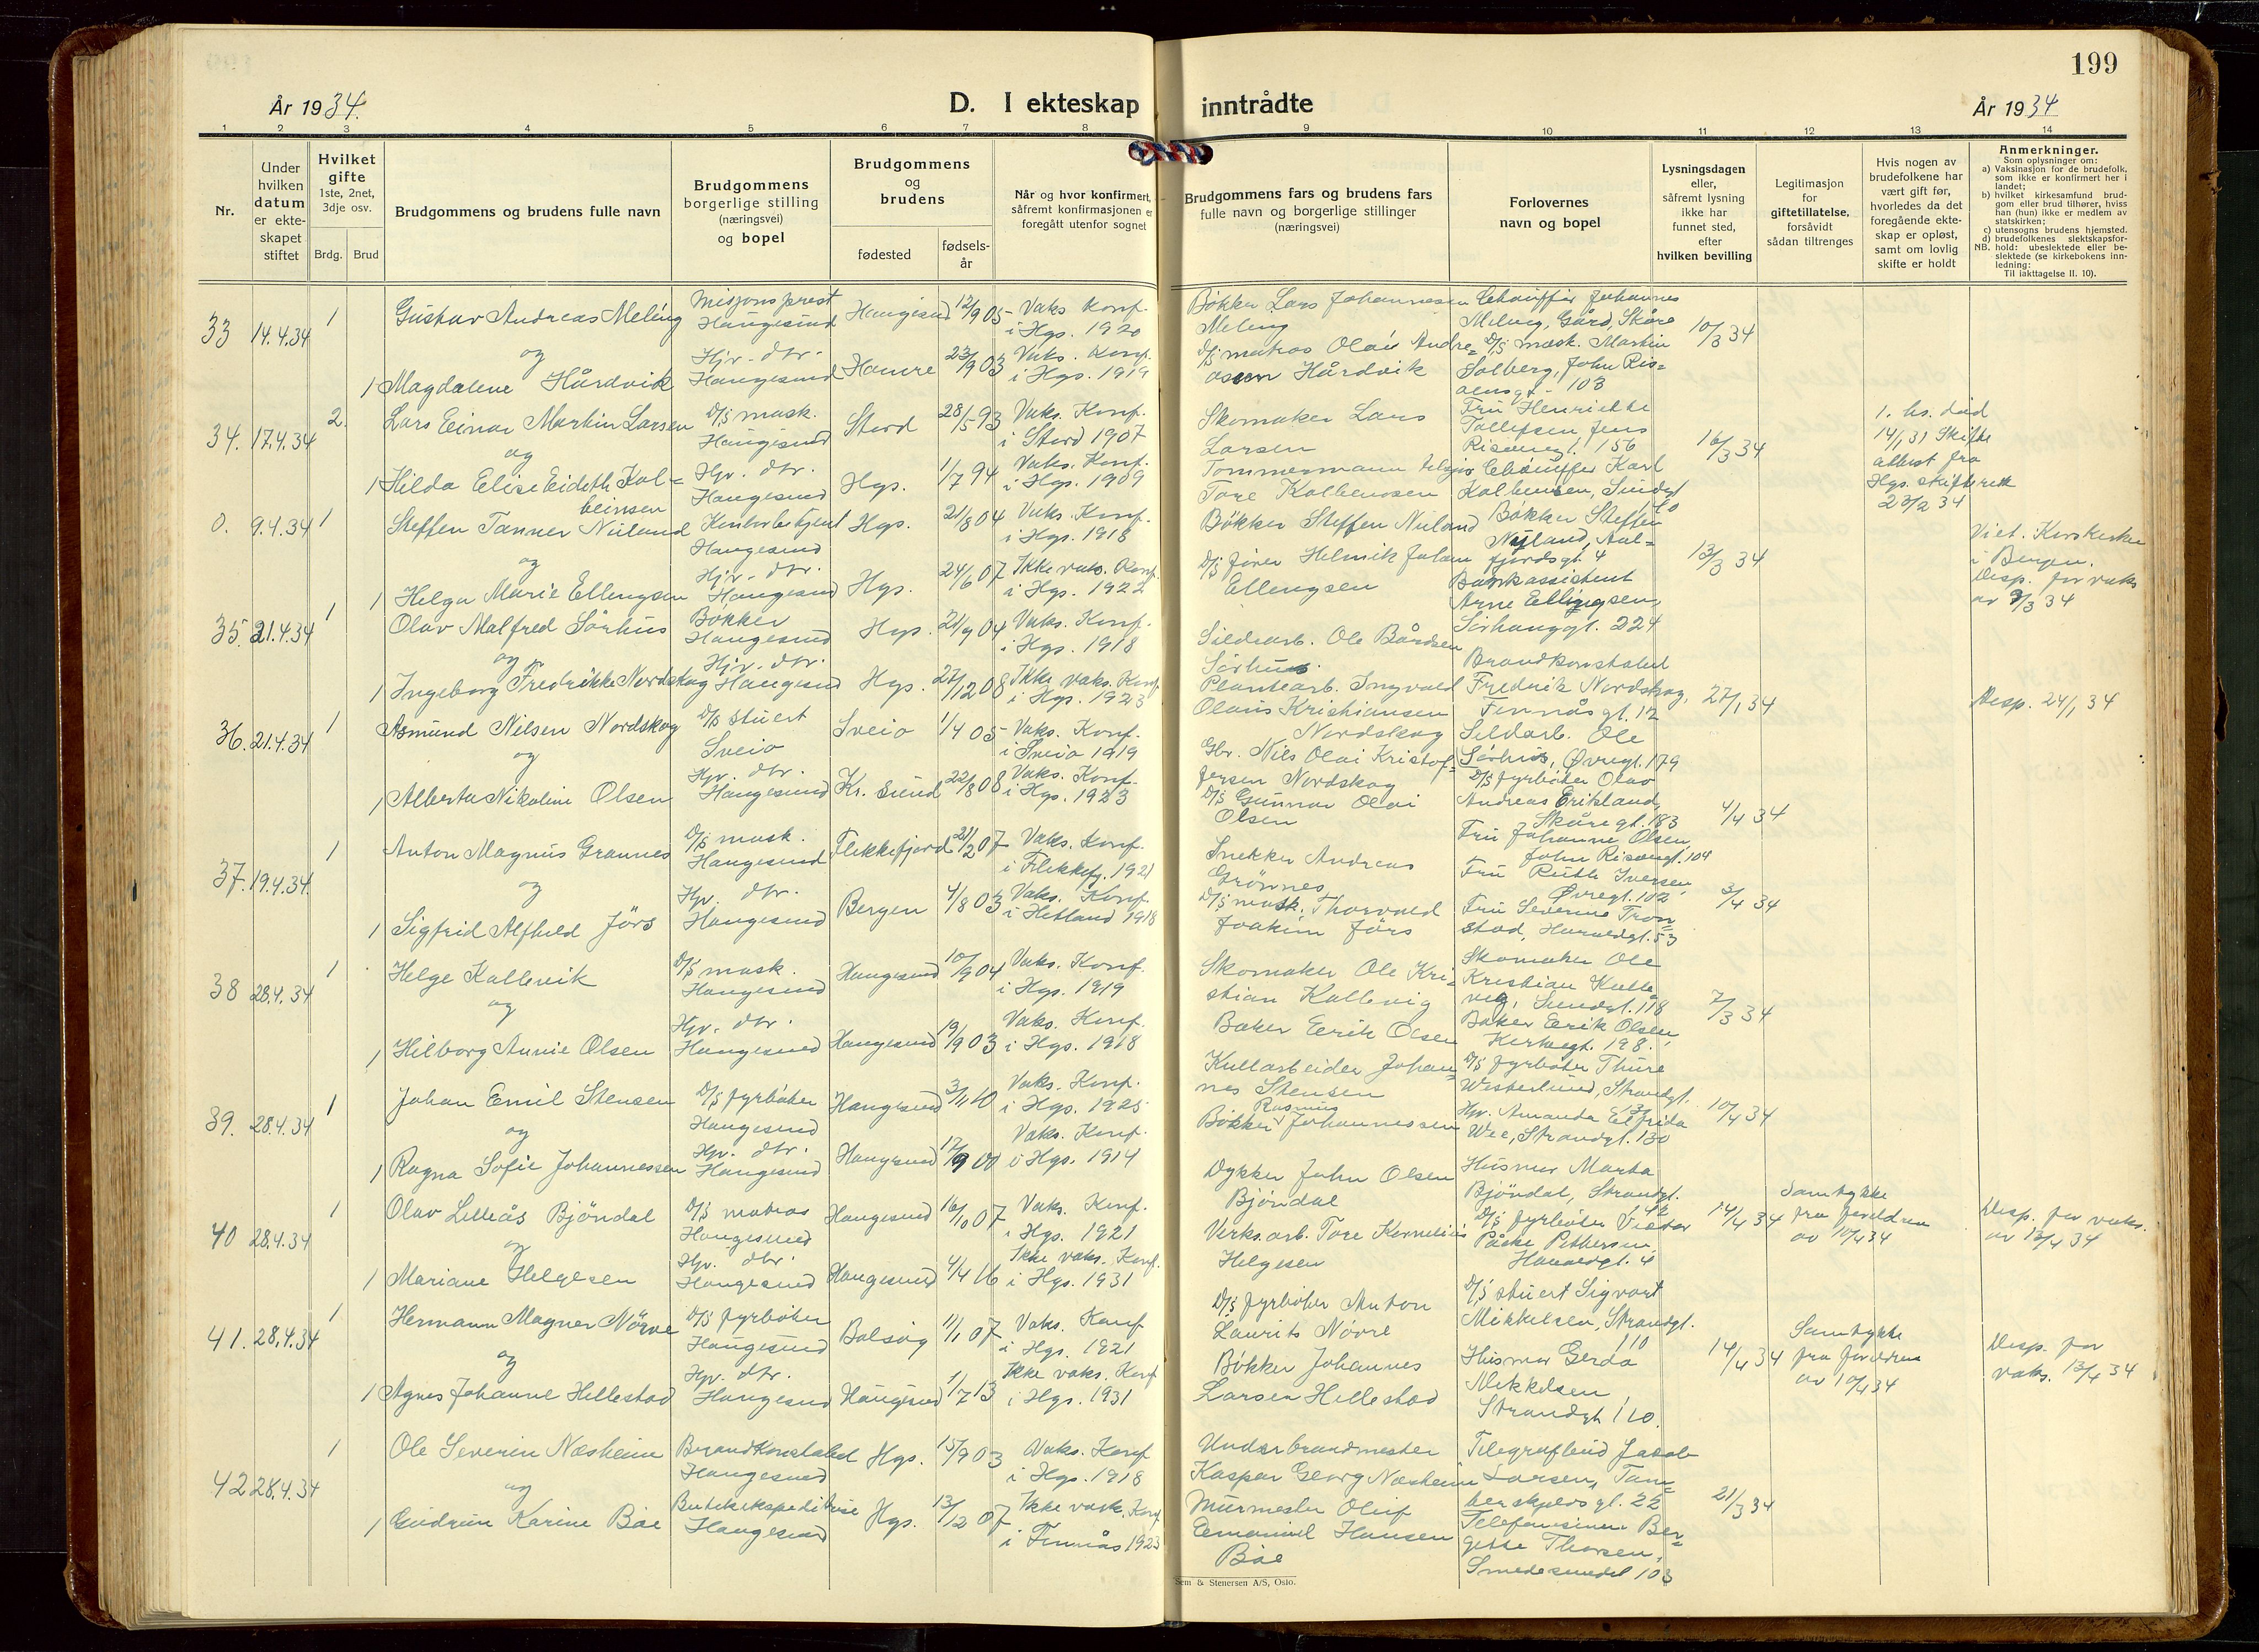 199
År 1934.
D. I ekteskap inntrådte
År 1934
1 2 3 4 5 6 7 8 9 10 11 12 13 14
Nr.
Under hvilken datum er ekteskapet stiftet
Hvilket gifte
1ste, 2net, 3dje osv.
Brdg. Brud
Brudgommens og brudens fulle navn
Brudgommens borgerlige stilling (næringsvei) og bopel
Brudgommens og brudens
fødested
fødsels-år
Når og hvor konfirmert, såfremt konfirmasjonen er foregått utenfor sognet
Brudgommens fars og brudens fars fulle navn og borgerlige stillinger (næringsvei)
Forlovernes navn og bopel
Lysningsdagen eller, såfremt lysning ikke har funnet sted, efter hvilken bevilling
Legitimasjon for giftetillatelse, forsåvidt sådan tiltrenges
Hvis nogen av brudefolkene har vært gift før, hvorledes da det foregående ekteskap er opløst, samt om lovlig skifte er holdt
Anmerkninger.
Som oplysninger om:
a) Vaksinasjon for de brudefolk, som ikke er konfirmert her i landet;
b) hvilket kirkesamfund brudgom eller brud tilhører, hviss han (hun) ikke er medlem av statskirken;
c) utensogns brudens hjemsted.
d) brudefolkenes slektskapsforhold: ubeslektede eller beslektede (se kirkebokens innledning:
NB. Til iakttagelse II. 10).
33 14.4.34 1 Gustav Andreas Meling Misjonsprest Haugesund Haugesund 12/9 05 Vaks. Konf. i Hgs. 1920
og
1 Magdalene Hårdvik Hjv. dtr. Haugesund Hamre 23/9 03 Vaks. Konf. i Hgs. 1919
Bøkker Lars Johannesen Meling
D/s matros Olai Andreassen Hårdvik
Chauffør Johannes Meling, Gård, Skåre
D/s mask. Martin Solberg, John Risøensgt. 103
10/3 34
34. 17.4.34 2. Lars Einar Martin Larsen D/s mask. Haugesund Stord 28/5 93 Vaks. Konf. i Stord 1907
og
1 Hilda Elise Eideth Kolbeinsen Hjv. dtr. Haugesund Hgs. 1/7 94 Vaks. Konf. i Hgs. 1909
Skomaker Lars Larsen
Tommermann Tore Kolbensen
Fru Henriette Tollefsen Jens Risøengt. 156
Chauffør Karl Kolbensen, Sundgt
16/3 34
1. hs. död 14/1 31 Skifteattest fra Hgs. skifterett 23/2 34
0. 9.4.34 1 Steffen Tanner Nüland Kontorbetjent Haugesund Hgs. 21/8 04 Vaks. Konf. i Hgs. 1918
og
1 Helga Marie Ellengsen Hjv. dtr. Haugesund Hgs. 24/6 07 Ikke vaks. Konf. i Hgs. 1922
Bøkker Steffen Nuland
D/s fører Helmik Johan Ellengsen
Bøkker Steffen Nyland, Aalfjordsgt. 4
Bankassistent Arne Ellingsen, Sørhauggt. 224
13/3 34
Viet i Korskirken i Bergen. Desp. for vaks av 9/3 34
35. 21.4.34 1 Olav Malfred Sørhus Bøkker Haugesund Hgs. 21/9 04 Vaks. Konf. i Hgs. 1918
og
1 Ingeborg Fredrikke Nordskog Hjv. dtr. Haugesund Hgs. 27/12 08 Ikke vaks. Konf i Hgs. 1923
Sildearb. Ole Bårdsen Sørhus.
Plantearb. Ingvald Olaus Kristiansen Nordskog
Brandkonstabel Fredrik Nordskog, Finnåsgt. 12
Sildarb. Ole Sørhus, Øvregt. 179
27/1 34
Desp. 24/1 34
36. 21.4.34 1 Asmund Nilsen Nordskog D/s stuert Sveio Sveio 1/4 05 Vaks. Konf. i Sveio 1919
og
1 Alberta Nikoline Olsen Hjv. dtr. Haugesund Kr. sund 22/8 08 Vaks. Konf. i Hgs. 1923
Gbr. Nils Olai Kristoffersen Nordskog
D/s Gunnar Olai Olsen
D/s fyrbøter Olav Andreas Erikland, Skåregt. 183
Fru Johanne Olsen, John Risøengt. 104
4/4 34
37. 19.4.34 1 Anton Magnus Grønnes D/s mask. Haugesund Flekkefjord 21/2 07 Vaks. Konf. i Flekkefj. 1921
og
1 Sigfrid Alfhild Jörs Hjv. dtr. Haugesund Bergen 4/8 03 Vaks. Konf. i Hetland 1918
Snekker Andreas Grønnes
D/s mask. Thorvald Joakim Jörs
Fru Ruth Iversen Øvregt. 102
Fru Severine Tronstad, Haraldsgt. 53
3/4 34
38 28.4.34 1 Helge Kallevik D/s mask. Haugesund Haugesund 10/9 04 Vaks. Konf. i Hgs. 1919
og
1 Hilborg Annie Olsen Hjv. dtr. Haugesund Haugesund 19/9 03 Vaks. Konf. i Hgs. 1918
Skomaker Ole Kristian Kallevig
Baker Eerik Olsen
Skomaker Ole Kristian Kallevig, Sundgt. 118
Baker Eerik Olsen, Kirkegt. 198.
7/3 34
39. 28.4.34 1 Johan Emil Stensen D/s fyrbøter Haugesund Haugesund 3/11 10 Vaks. Konf. i Hgs. 1925
og
1 Ragna Sofie Johannessen Hjv. dtr. Haugesund Haugesund 17/9 00 Vaks. Konf. i Hgs. 1914
Kullarbeider Johannes Stensen
Bøkker Rasmus Johannessen
D/s fyrbøter Thure Westerlund, Strandgt.
Hjv. Amanda Elfrida Wee, Strandgt. 130
10/4 34
40 28.4.34 1 Olav Lilleås Bjöndal D/s matros Haugesund Haugesund 16/10 07 Vaks. Konf. i Hgs. 1921
og
1 Mariane Helgesen Hjv. dtr. Haugesund Haugesund 4/4 16 Ikke vaks. Konf. i Hgs. 1931
Dykker John Olsen Bjøndal
Verks.arb. Tore Kornelius Helgesen
Husmor Marta Bjöndal, Strandgt. 142
D/s fyrbøter Victor Påske Pettersen, Haraldsgt. 4
14/4 34
Samtykke fra foreldrene av 10/4 34
Desp. for vaks. av 13/4 34
41. 28.4.34 1 Hermann Magner Nörve D/s fyrbøter Haugesund Bolsøy 11/1 07 Vaks. Konf i Hgs. 1921
og
1 Agnes Johanne Hellestad Hjv. dtr. Haugesund Haugesund 1/7 13 Ikke vaks. Konf i Hgs. 1931
D/s fyrbøter Anton Laurits Nörve
Bøkker Johannes Larsen Hellestad
D/s stuert Sigvart Mikkelsen, Strandgt. 110
Husmor Gerda Mikkelsen Strandgt. 110.
14/4 34
Samtykke fra foreldrene av 10/4 34
Desp. for vaks. 13/4 34
42 28.4.34 1 Ole Severin Næsheim Brandkonstabel Haugesund Hgs. 15/9 03 Vaks. Konf i Hgs. 1918
og
1 Gudrun Karine Böe Butikkekspeditrise Haugesund Hgs. 13/2 07 Ikke vaks. Konf i Finnås 1923
Underbrandmester Kaspar Georg Næsheim
Murmester Oluf Emanuel Hansen Böe
Telegrafbud Jakob Larsen, Tamberskjelvsgt. 22
Telefonistinne Bergitte Thorsen, Smedesundet 103
21/3 34
Sem & Stenersen A/S, Oslo.